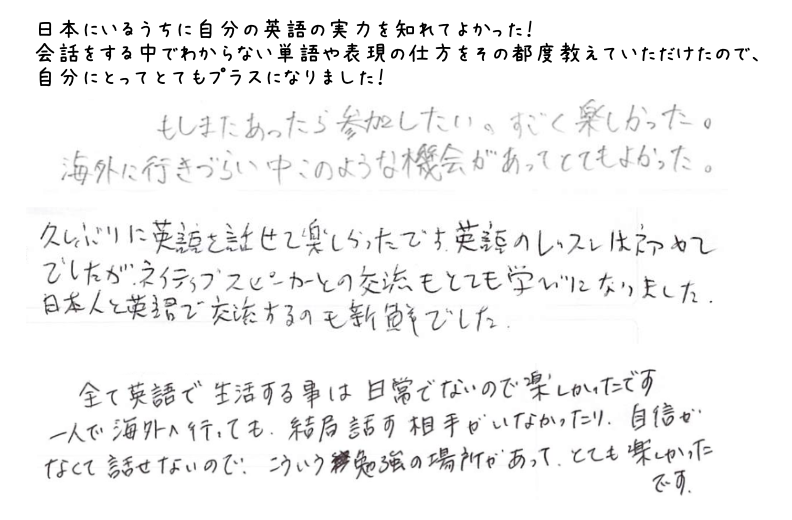 日本にいるうちに自分の英語の実力を知れてよかった！
会話をする中でわからない単語や表現の仕方をその都度教えていただけたので、
自分にとってとてもプラスになりました！
もしまたあったら参加したい。すごく楽しかった。
海外に行きづらい中このような機会があってとてもよかった。
久しぶりに英語を話せて楽しかったです。英語のレッスンは初めて
でしたが、ネイティブスピーカーとの交流もとても学びになりました。
日本人と英語で交流するのも新鮮でした。
全て英語で生活する事は日常でないので楽しかったです
一人で海外へ行っても、結局話す相手がいなかったり、自信が
なくて話せないので、こういう勉強の場所があって、とても楽しかった
です。